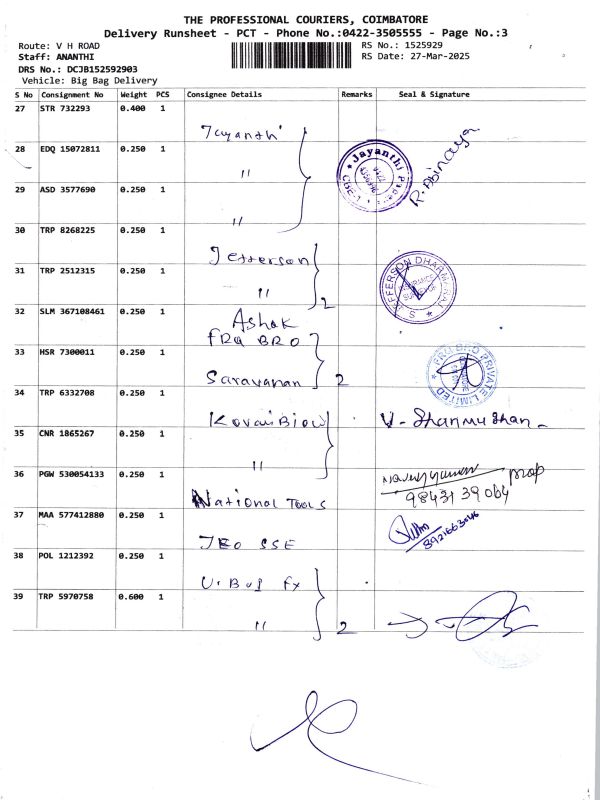 THE PROFESSIONAL COURIERS, COIMBATORE
Delivery Runsheet - PCT - Phone No.:0422-3505555 - Page No.:3
Route: V H ROAD RS No.: 1525929
Staff: ANANTHI RS Date: 27-Mar-2025
DRS No.: DCJB152592903
Vehicle: Big Bag Delivery
S No Consignment No Weight PCS Consignee Details Remarks Seal & Signature
27 STR 732293 0.400 1 Jayanthi
28 EDQ 15072811 0.250 1 "
Jayanthi
R. Abinaya
29 ASD 3577690 0.250 1 "
30 TRP 8268225 0.250 1 Jefferson
31 TRP 2512315 0.250 1 " 2
S. JEFFERSON DHARMARAJ
32 SLM 367108461 0.250 1 Ashok
FRQ BRO
33 HSR 7300011 0.250 1 Saravanan 2
PRIVATE LIMITED
34 TRP 6332708 0.250 1
35 CNR 1865267 0.250 1 "
36 PGW 530054133 0.250 1 National Tools
9843139064
37 MAA 577412880 0.250 1
38 POL 1212392 0.250 1
39 TRP 5970758 0.600 1 " 2